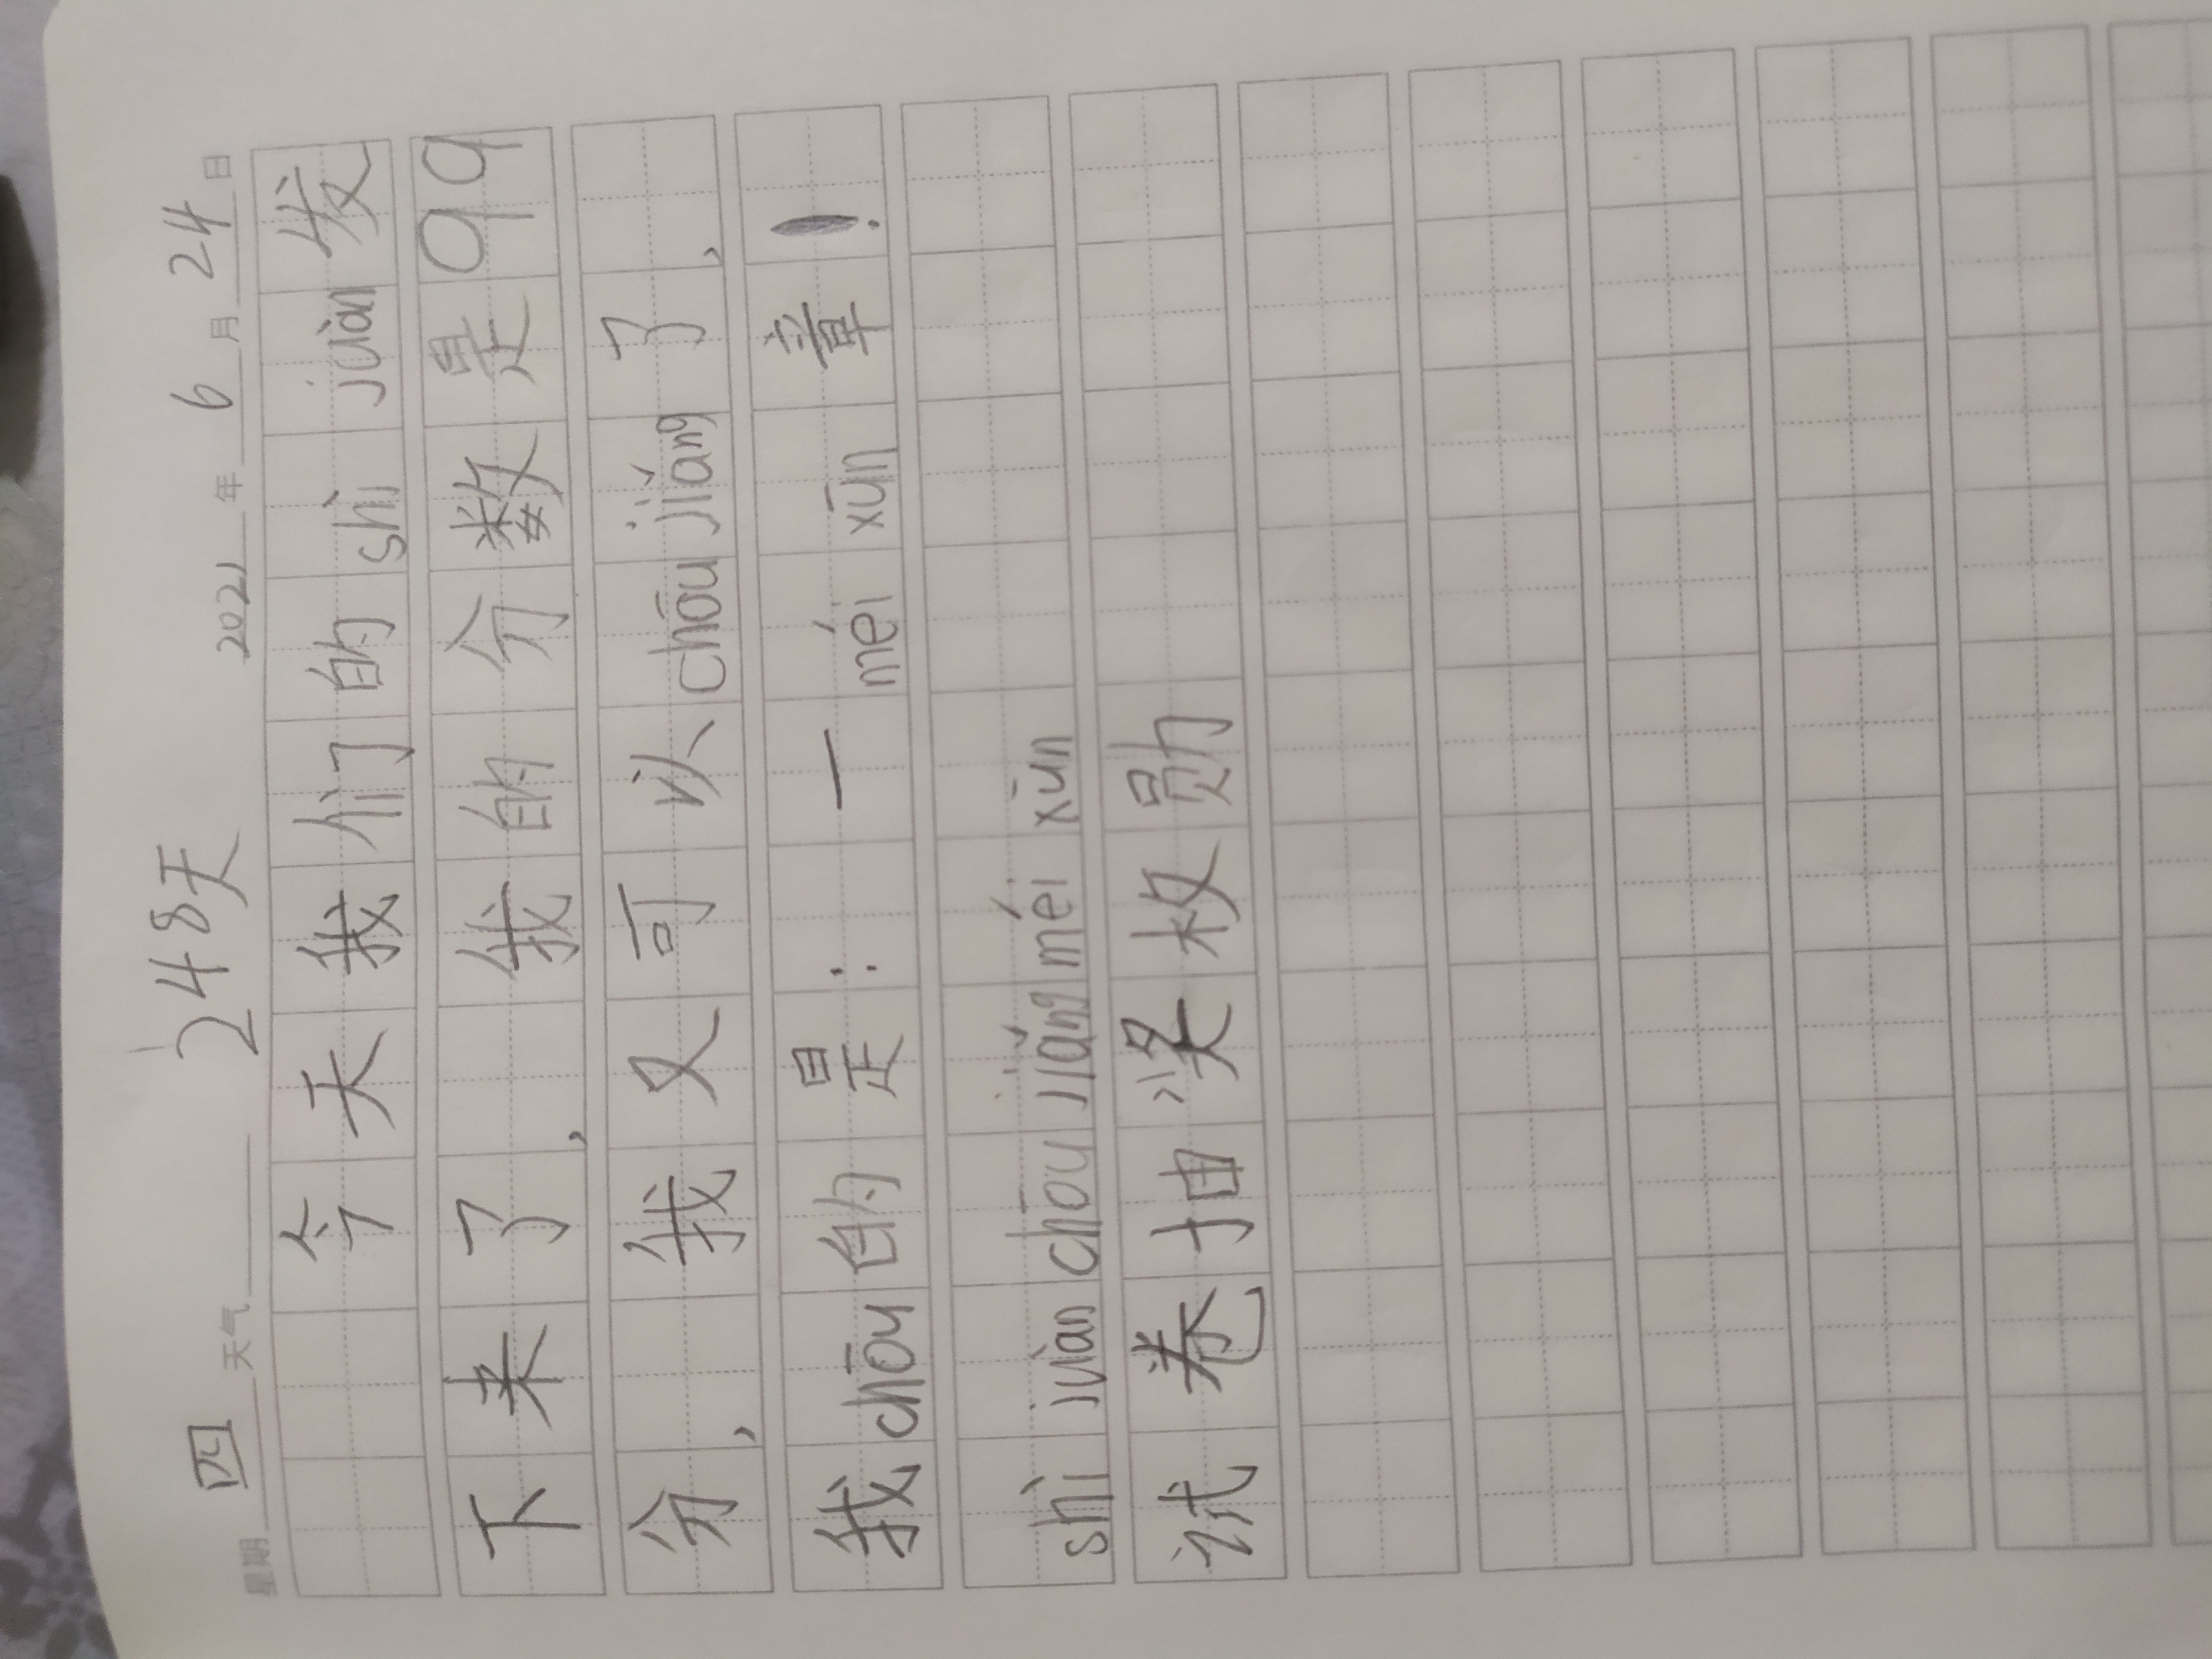 248天
星期 四 天气 2021 年 6 月 24 日
今天我们的shì juàn发
下来了,我的分数是99
分,我又可以chōu jiǎng了,
我chōu的是:一méi xūn章!
shì juàn chōu jiǎng méi xūn
试卷抽奖枚勋